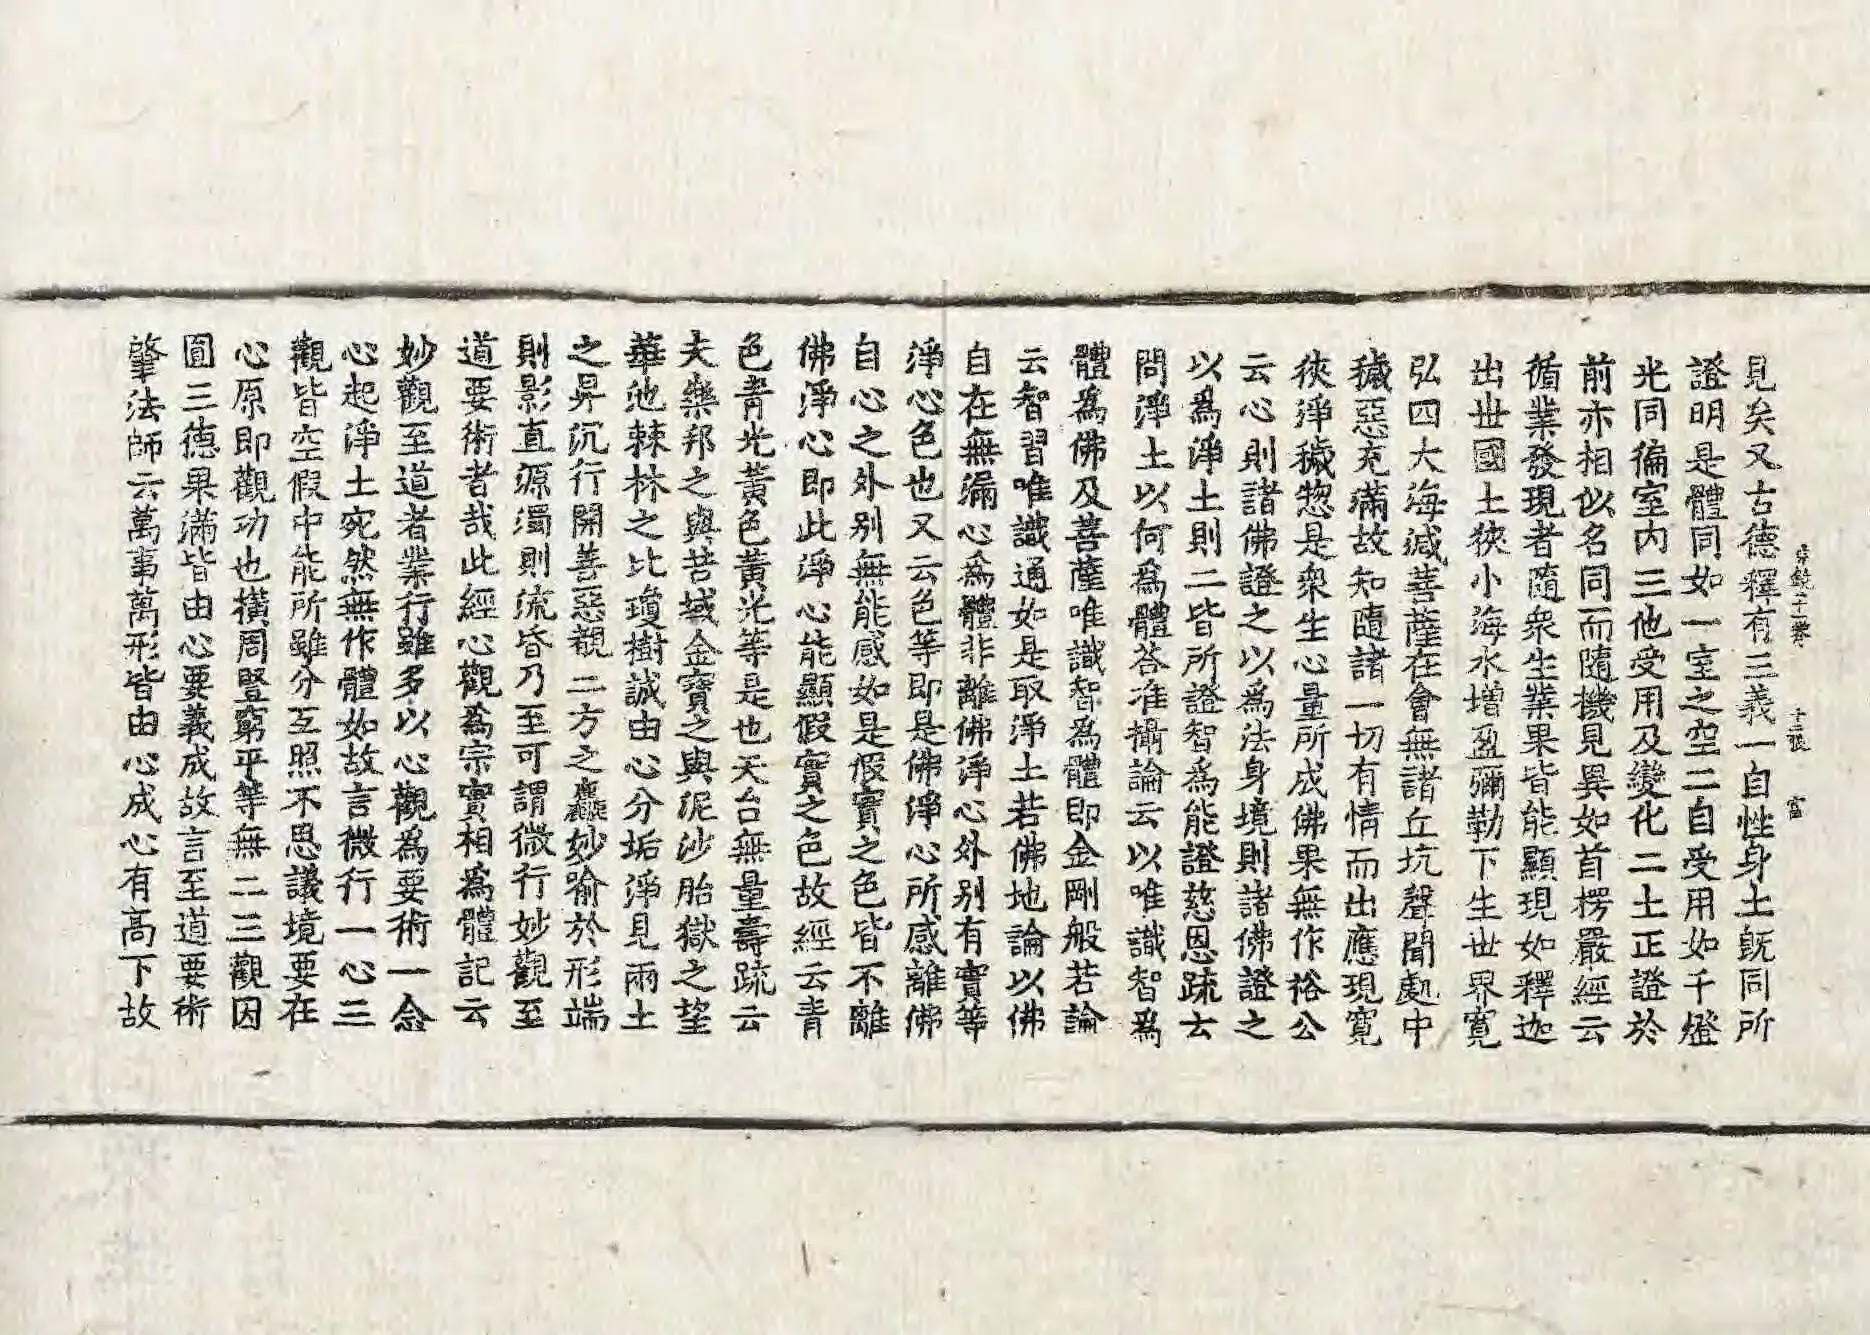 見矣又古德釋有三義一自性身土既同所
證明是體同如一室之空二自受用如千燈
光同徧室內三他受用及變化二土正證於
前亦相似名同而隨機見異如首楞嚴經云
循業發現者隨衆生業果皆能顯現如釋迦
出世國土狹小海水增盈彌勒下生世界寬
弘四大海減菩薩在會無諸丘坑聲聞處中
穢惡充滿故知隨諸一切有情而出應現寬
狹淨穢惣是衆生心量所成佛果無作裕公
云心則諸佛證之以爲法身境則諸佛證之
以爲淨土則二皆所證智爲能證慈恩疏云
問淨土以何爲體荅准攝論云以唯識智爲
體爲佛及菩薩唯識智爲體即金剛般若論
云智習唯識通如是取淨土若佛地論以佛
自在無漏心爲體非離佛淨心外別有實等
淨心色也又云色等即是佛淨心所感離佛
自心之外別無能感如是假實之色皆不離
佛淨心即此淨心能顯假實之色故經云青
色青光黃色黃光等是也天台無量壽疏云
夫樂邦之與苦域金寶之與泥沙胎獄之望
華池棘林之比瓊樹誠由心分垢淨見兩土
之昇沉行開善惡覩二方之麤妙喻於形端
則影直源濁則流昏乃至可謂微行妙觀至
道要術者哉此經心觀爲宗實相爲體記云
妙觀至道者業行雖多以心觀爲要術一念
心起淨土宛然無作體如故言微行一心三
觀皆空假中能所雖分互照不思議境要在
心原即觀功也橫周豎窮平等無二三觀因
圓三德果滿皆由心要義成故言至道要術
肇法師云萬事萬形皆由心成心有高下故
宗鏡二十一卷 十二張 富